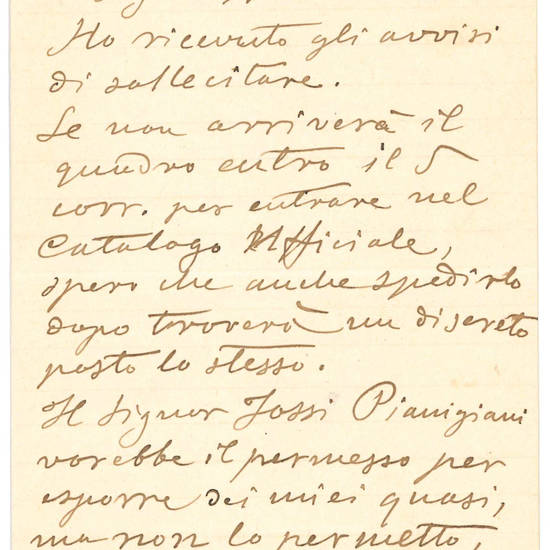 Ho ricevuto gli avvisi
di sollecitare.
Se non arriverà il
quadro entro il 5
corr. per entrare nel
Catalogo Ufficiale,
spero che anche spedirlo
dopo troverà un discreto
posto lo stesso.
Il Signor Jossi Pianigiani
vorebbe il permesso per
esporre dei miei quasi,
ma non lo permetto,